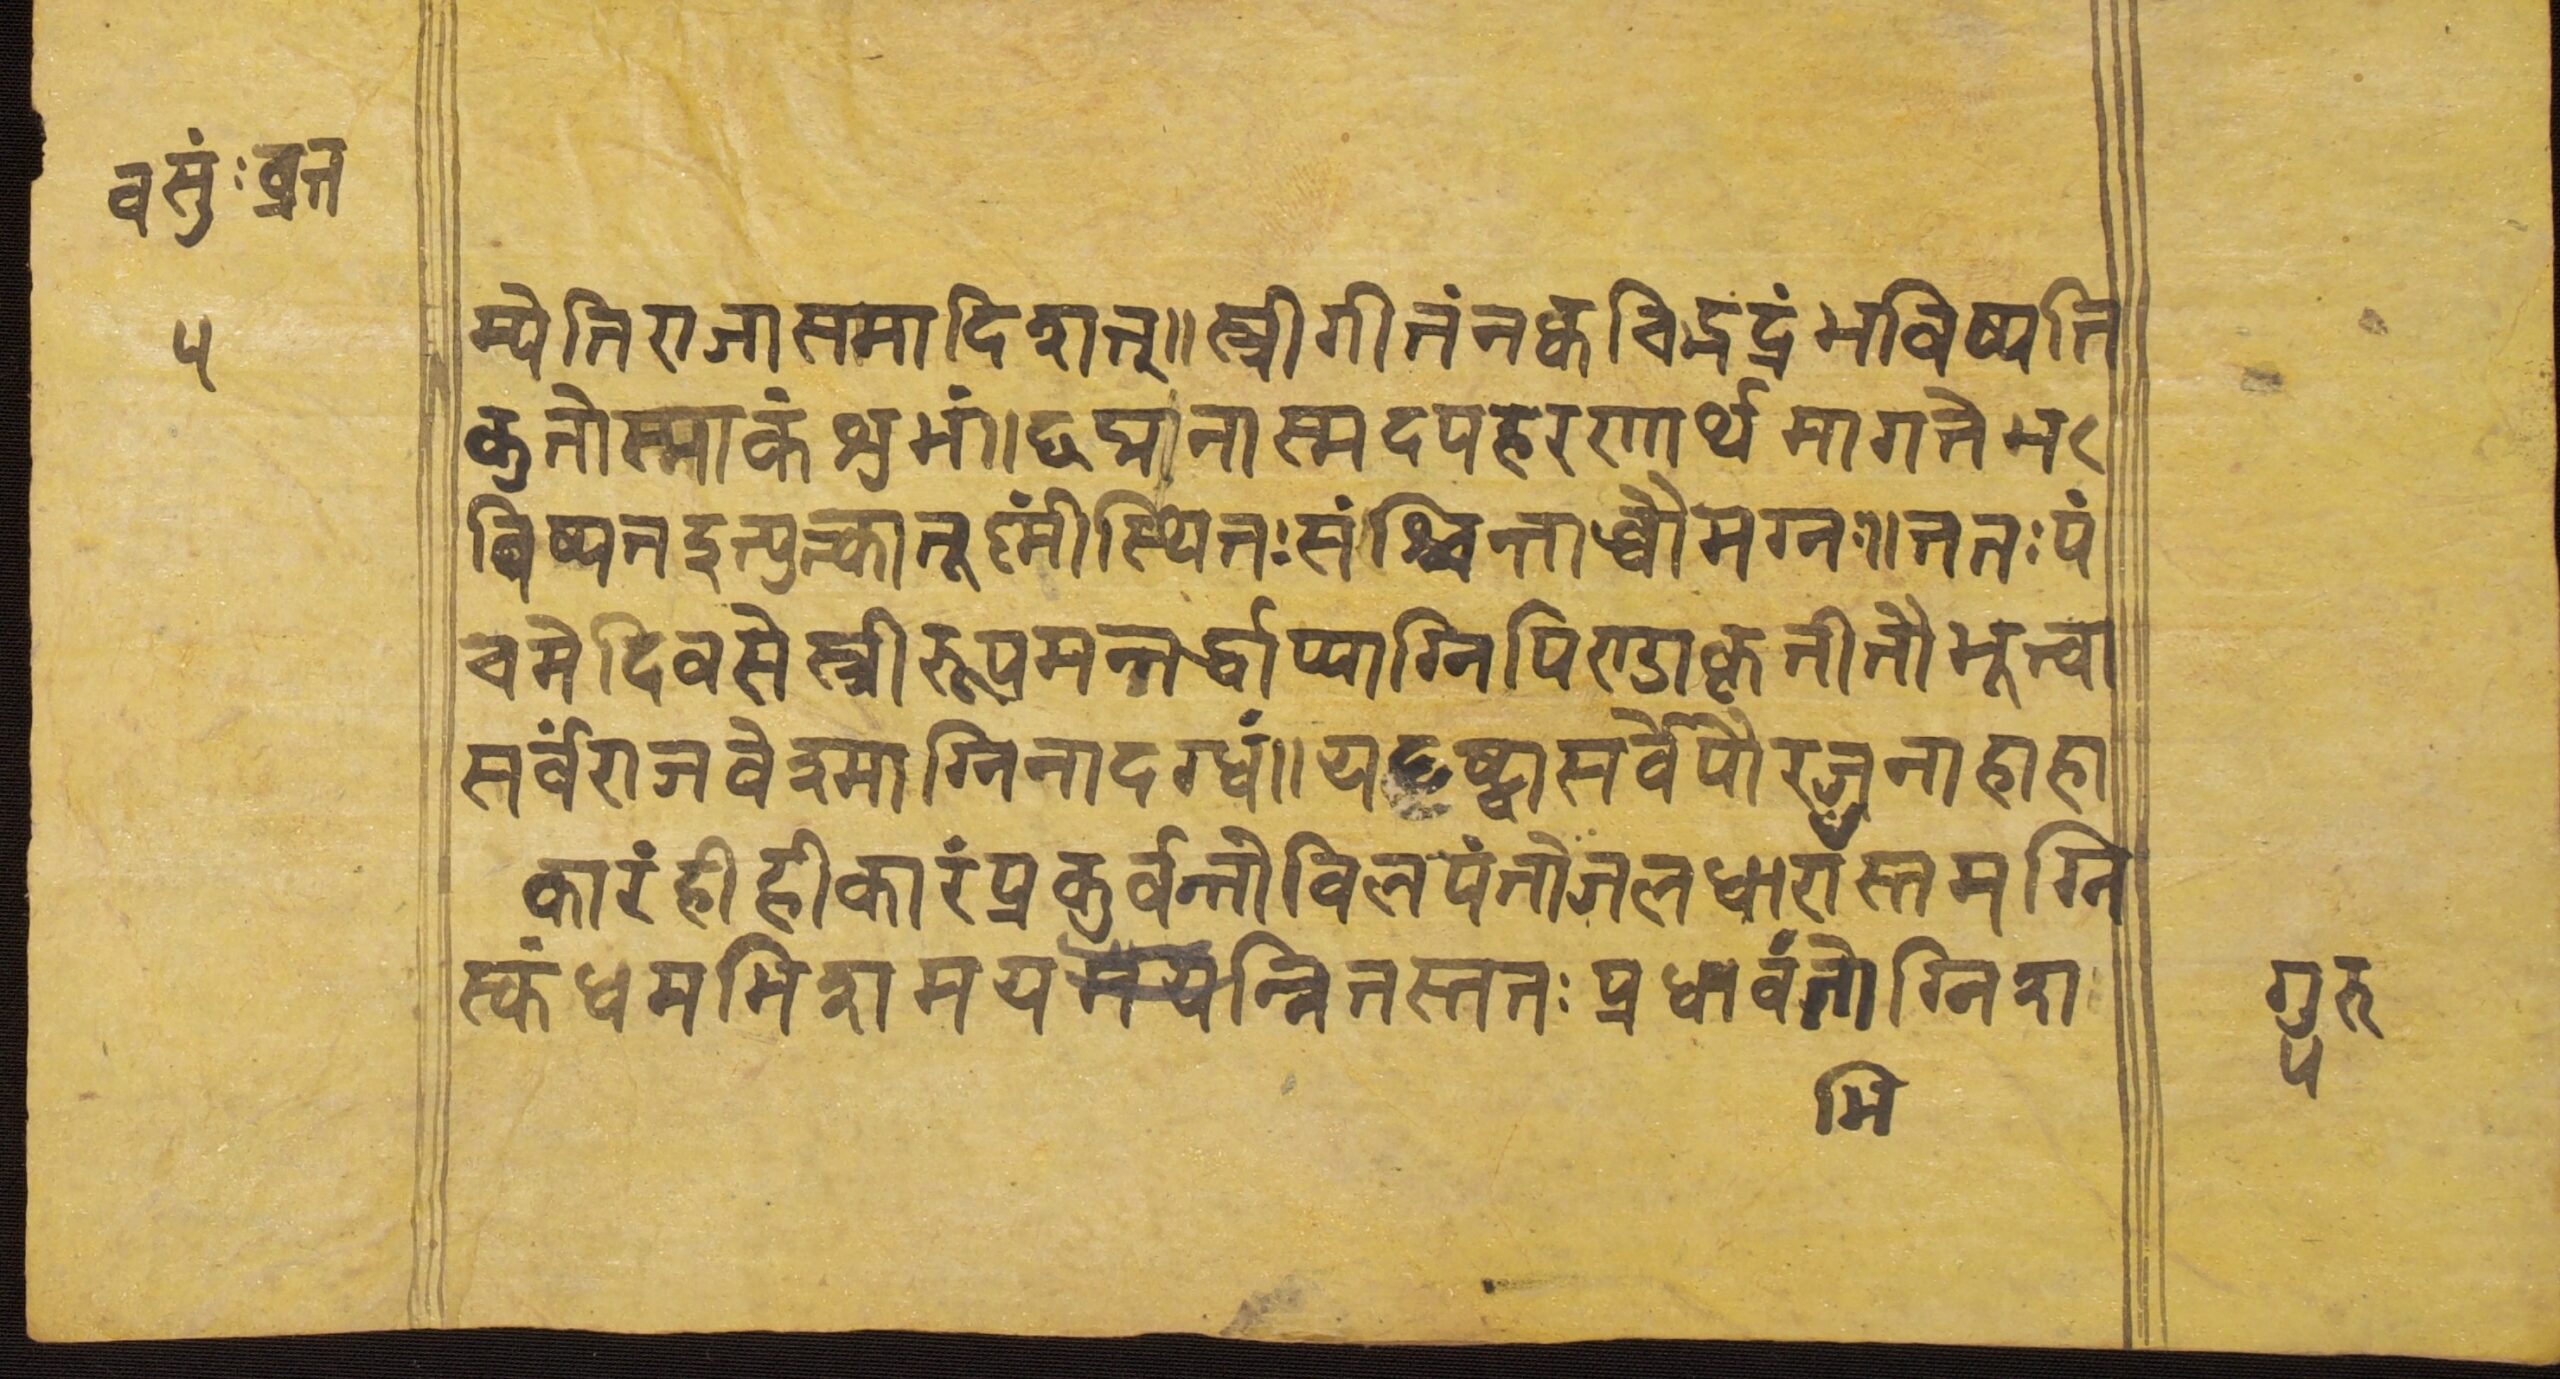 वसुंःव्रत
५
म्येतिराजासमादिशत्॥स्त्रीगीतंनक्वचिद्भद्रंभविष्यति
कुतोस्माकंशुभं॥छद्मनास्मदपहरणार्थमागतेभ
विष्यतइत्युत्क्वातूष्णींस्थितःसंश्चिन्ताब्धौमग्नः॥ततःपं
चमेदिवसेस्त्रीरूपमन्तर्द्धाप्याग्निपिण्डाकृतीतौभूत्वा
सर्वंराजवेश्माग्निनादग्धं॥यद्दृष्ट्वासर्वेपौरजनाहाहा
कारंहीहीकारंप्रकुर्वन्तोविलपंतोजलधारांस्तमग्नि
स्कंधमभिशमयन्नितस्ततःप्रधावंतोग्निशा
मि
गुरु
५